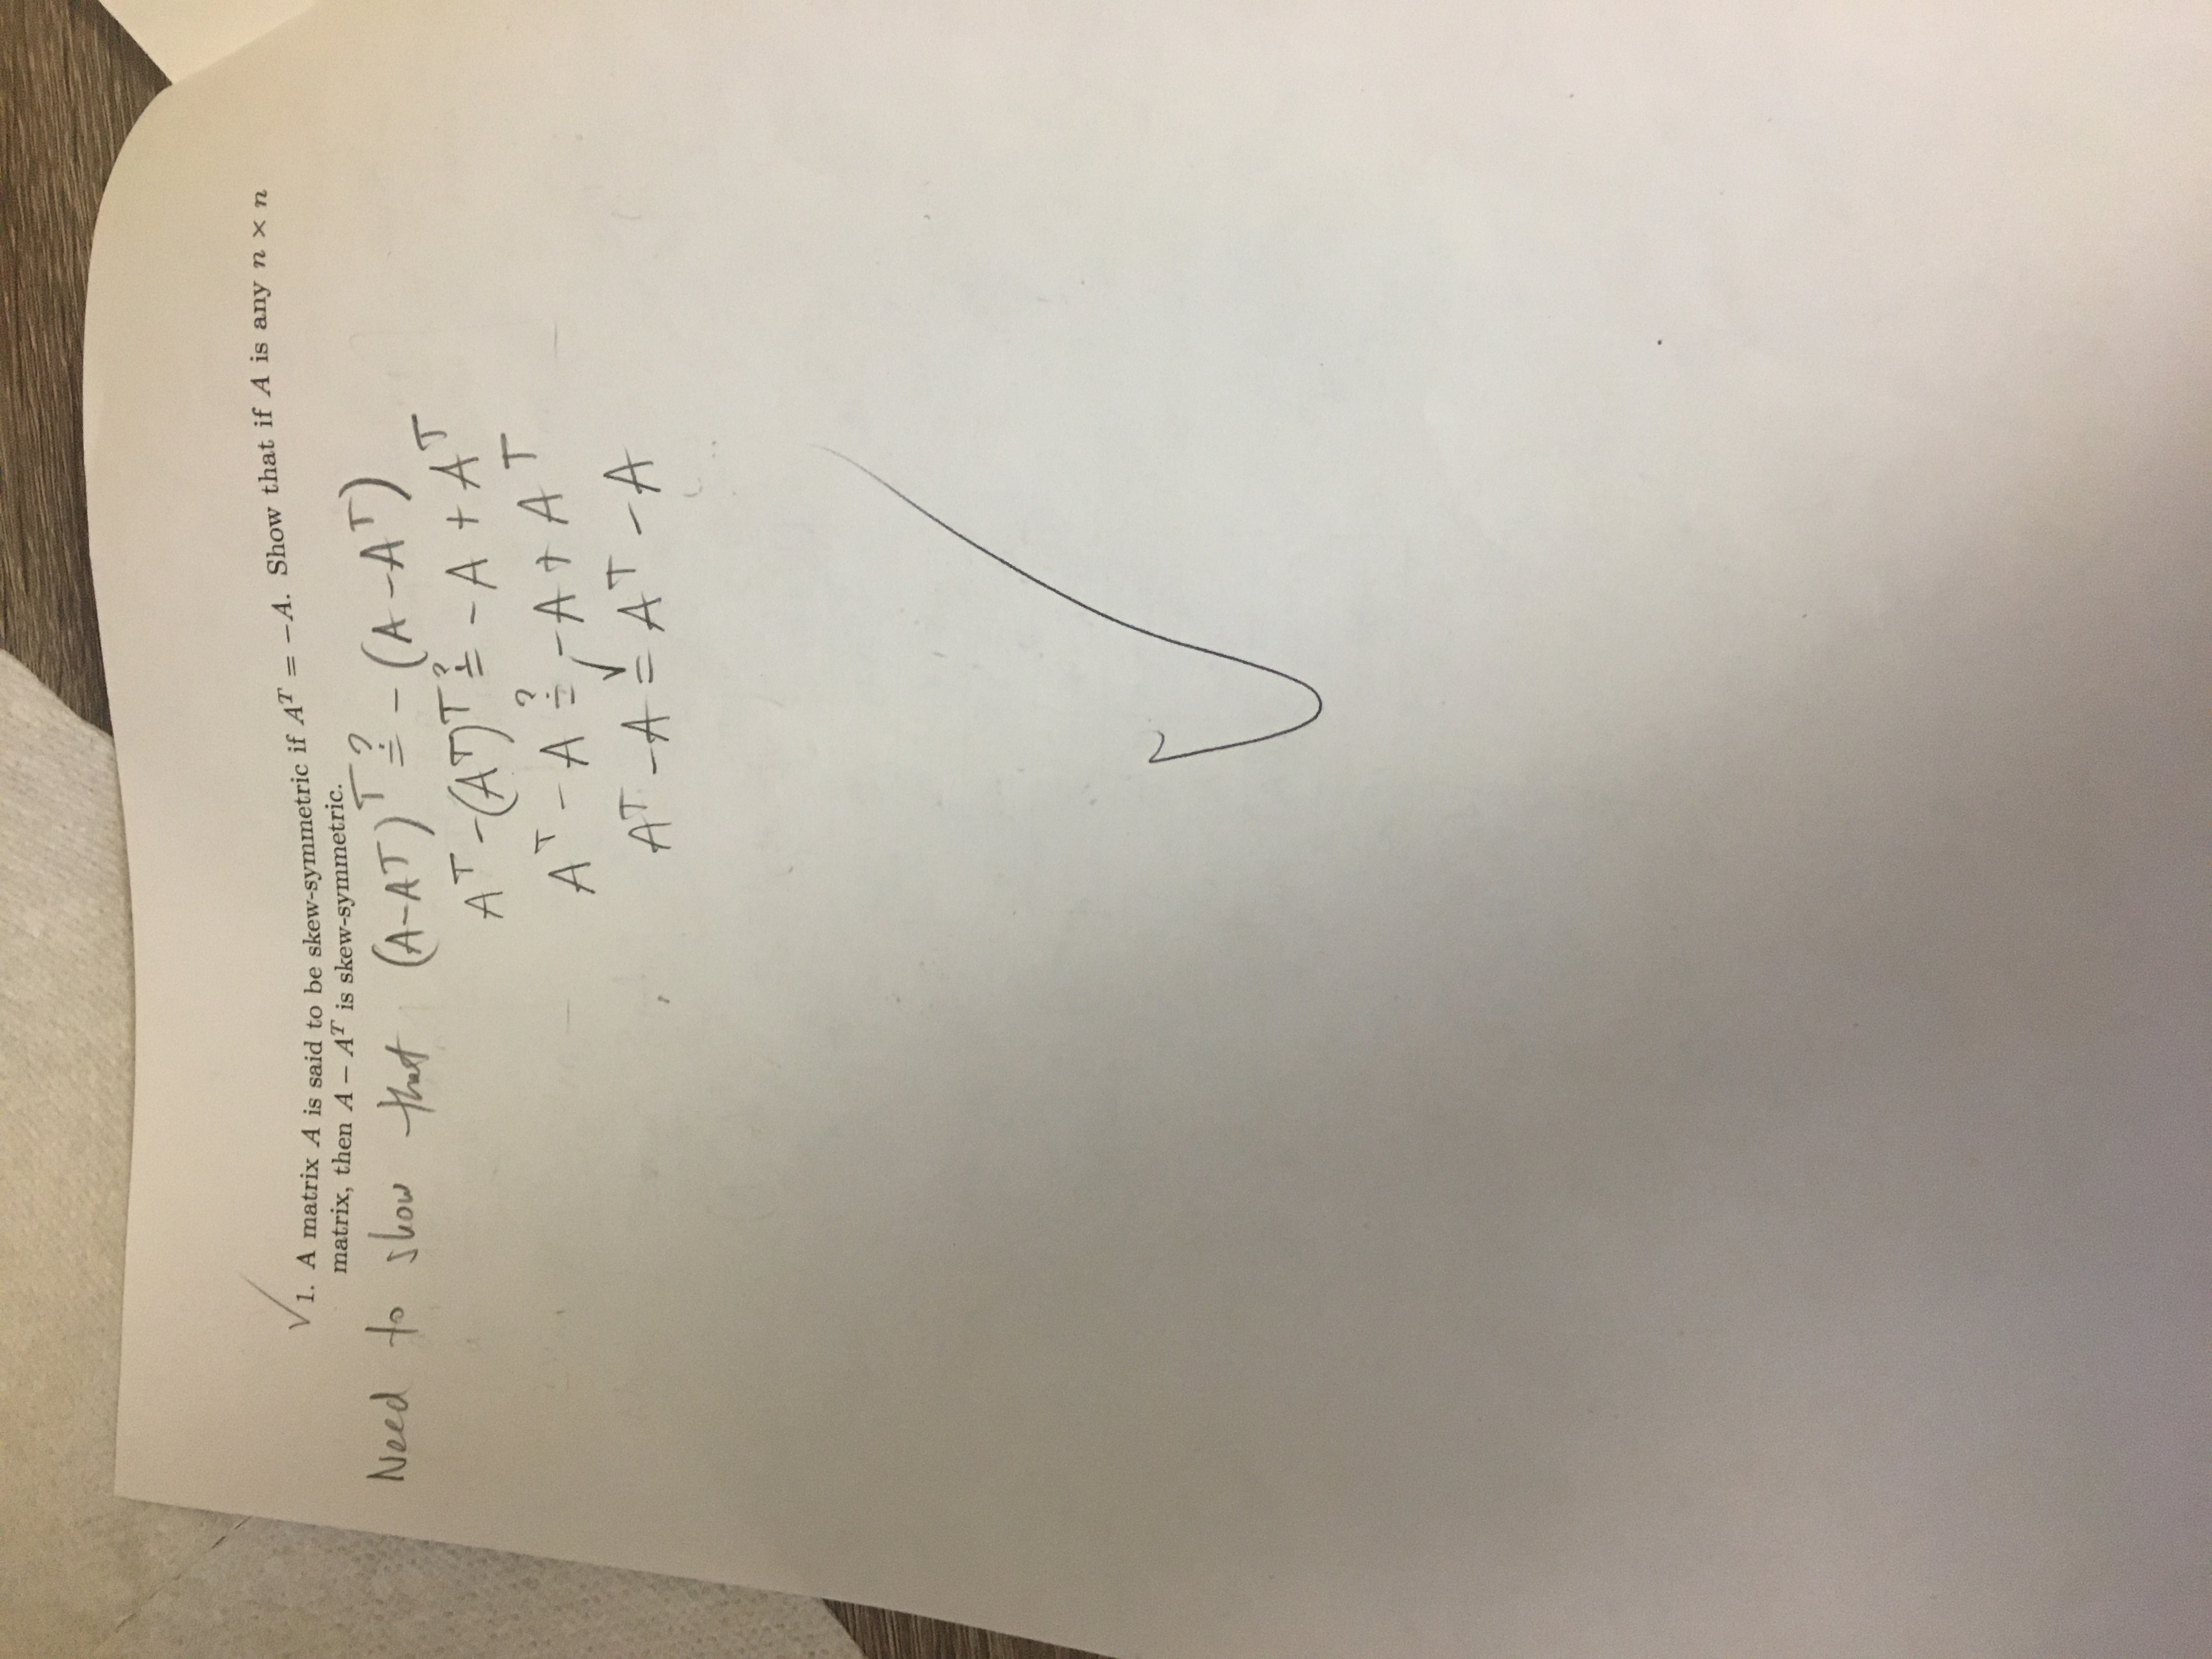 1. A matrix A is said to be skew-symmetric if Aᵀ = −A. Show that if A is any n × n
matrix, then A − Aᵀ is skew-symmetric.
Need to show that (A-Aᵀ)ᵀ ≟ - (A -Aᵀ)
Aᵀ -(Aᵀ)ᵀ ≟ -A + Aᵀ
Aᵀ - A ≟ -A + Aᵀ
Aᵀ -A = Aᵀ -A